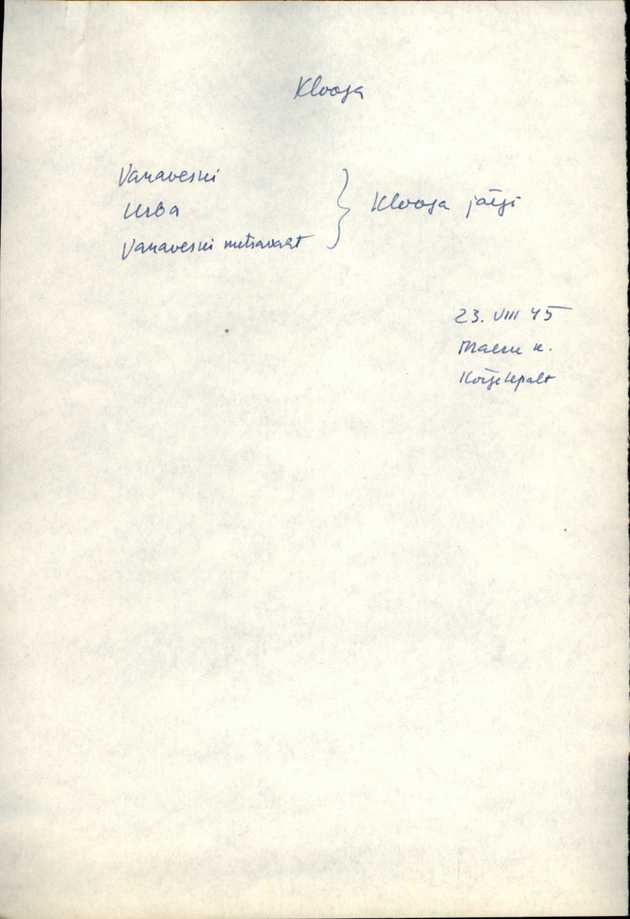 Klooga
Vanaveski
Urba
Vanaveski metsavaht
Klooga järgi
23. VIII 45
Maeru k.
Kõigilepalt